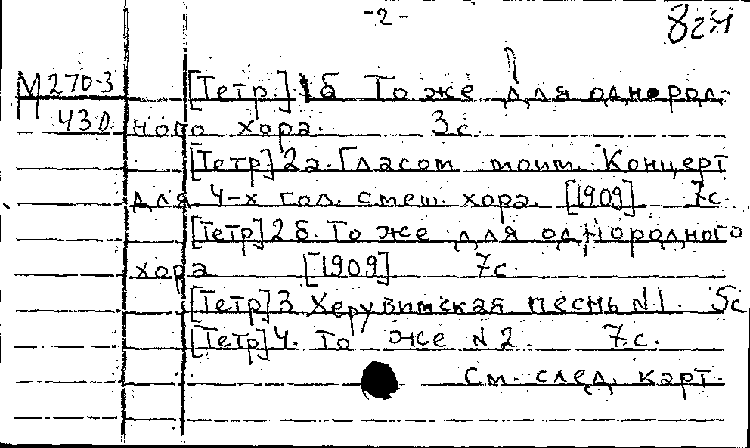 -2-
М 270-3
430
[Тетр.] 1б То же для однород-
ного хора. 3с.
[Тетр] 2а. Гласом моим. Концерт
для 4-х гол. смеш. хора. [1909]. 7с.
[Тетр] 2б. То же для однородного
хора [1909] 7с
[Тетр] 3 Херувимская песнь N1. 5с
[Тетр] 4. То же N2. 7с.
См. след. карт.